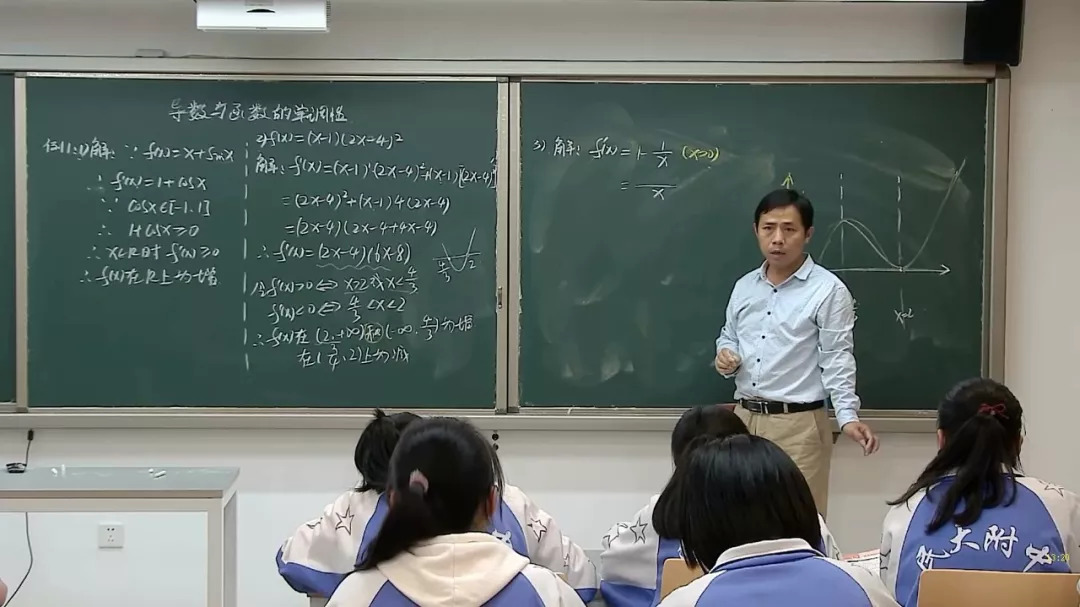 导数与函数的单调性
例1:(1)解:∵f(x)=x+sinx
∴f'(x)=1+cosx
∵cosx∈[-1,1]
∴1+cosx≥0
∴x∈R时 f'(x)≥0
∴f(x)在R上为增
2) f(x)=(x-1)(2x-4)²
解:f'(x)=(x-1)'(2x-4)²+(x-1)[(2x-4)²]'
=(2x-4)²+(x-1)4(2x-4)
=(2x-4)(2x-4+4x-4)
∴f'(x)=(2x-4)(6x-8)
令f'(x)>0⇔x>2或x<4/3
f'(x)<0⇔4/3<x<2
∴f(x)在(2,+∞)和(-∞,4/3)为增
在(
,2)上为减
4/3
2
3)解:f'(x)=1-1/x (x>0)
=
x
x=2
大附